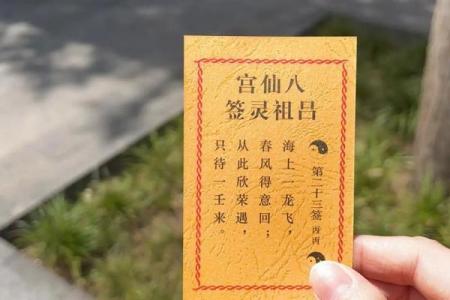 八仙宫
吕祖灵签
第二十三签 丙丙
海上一龙飞，
春风得意回；
从此欣荣遇，
只待一壬来。